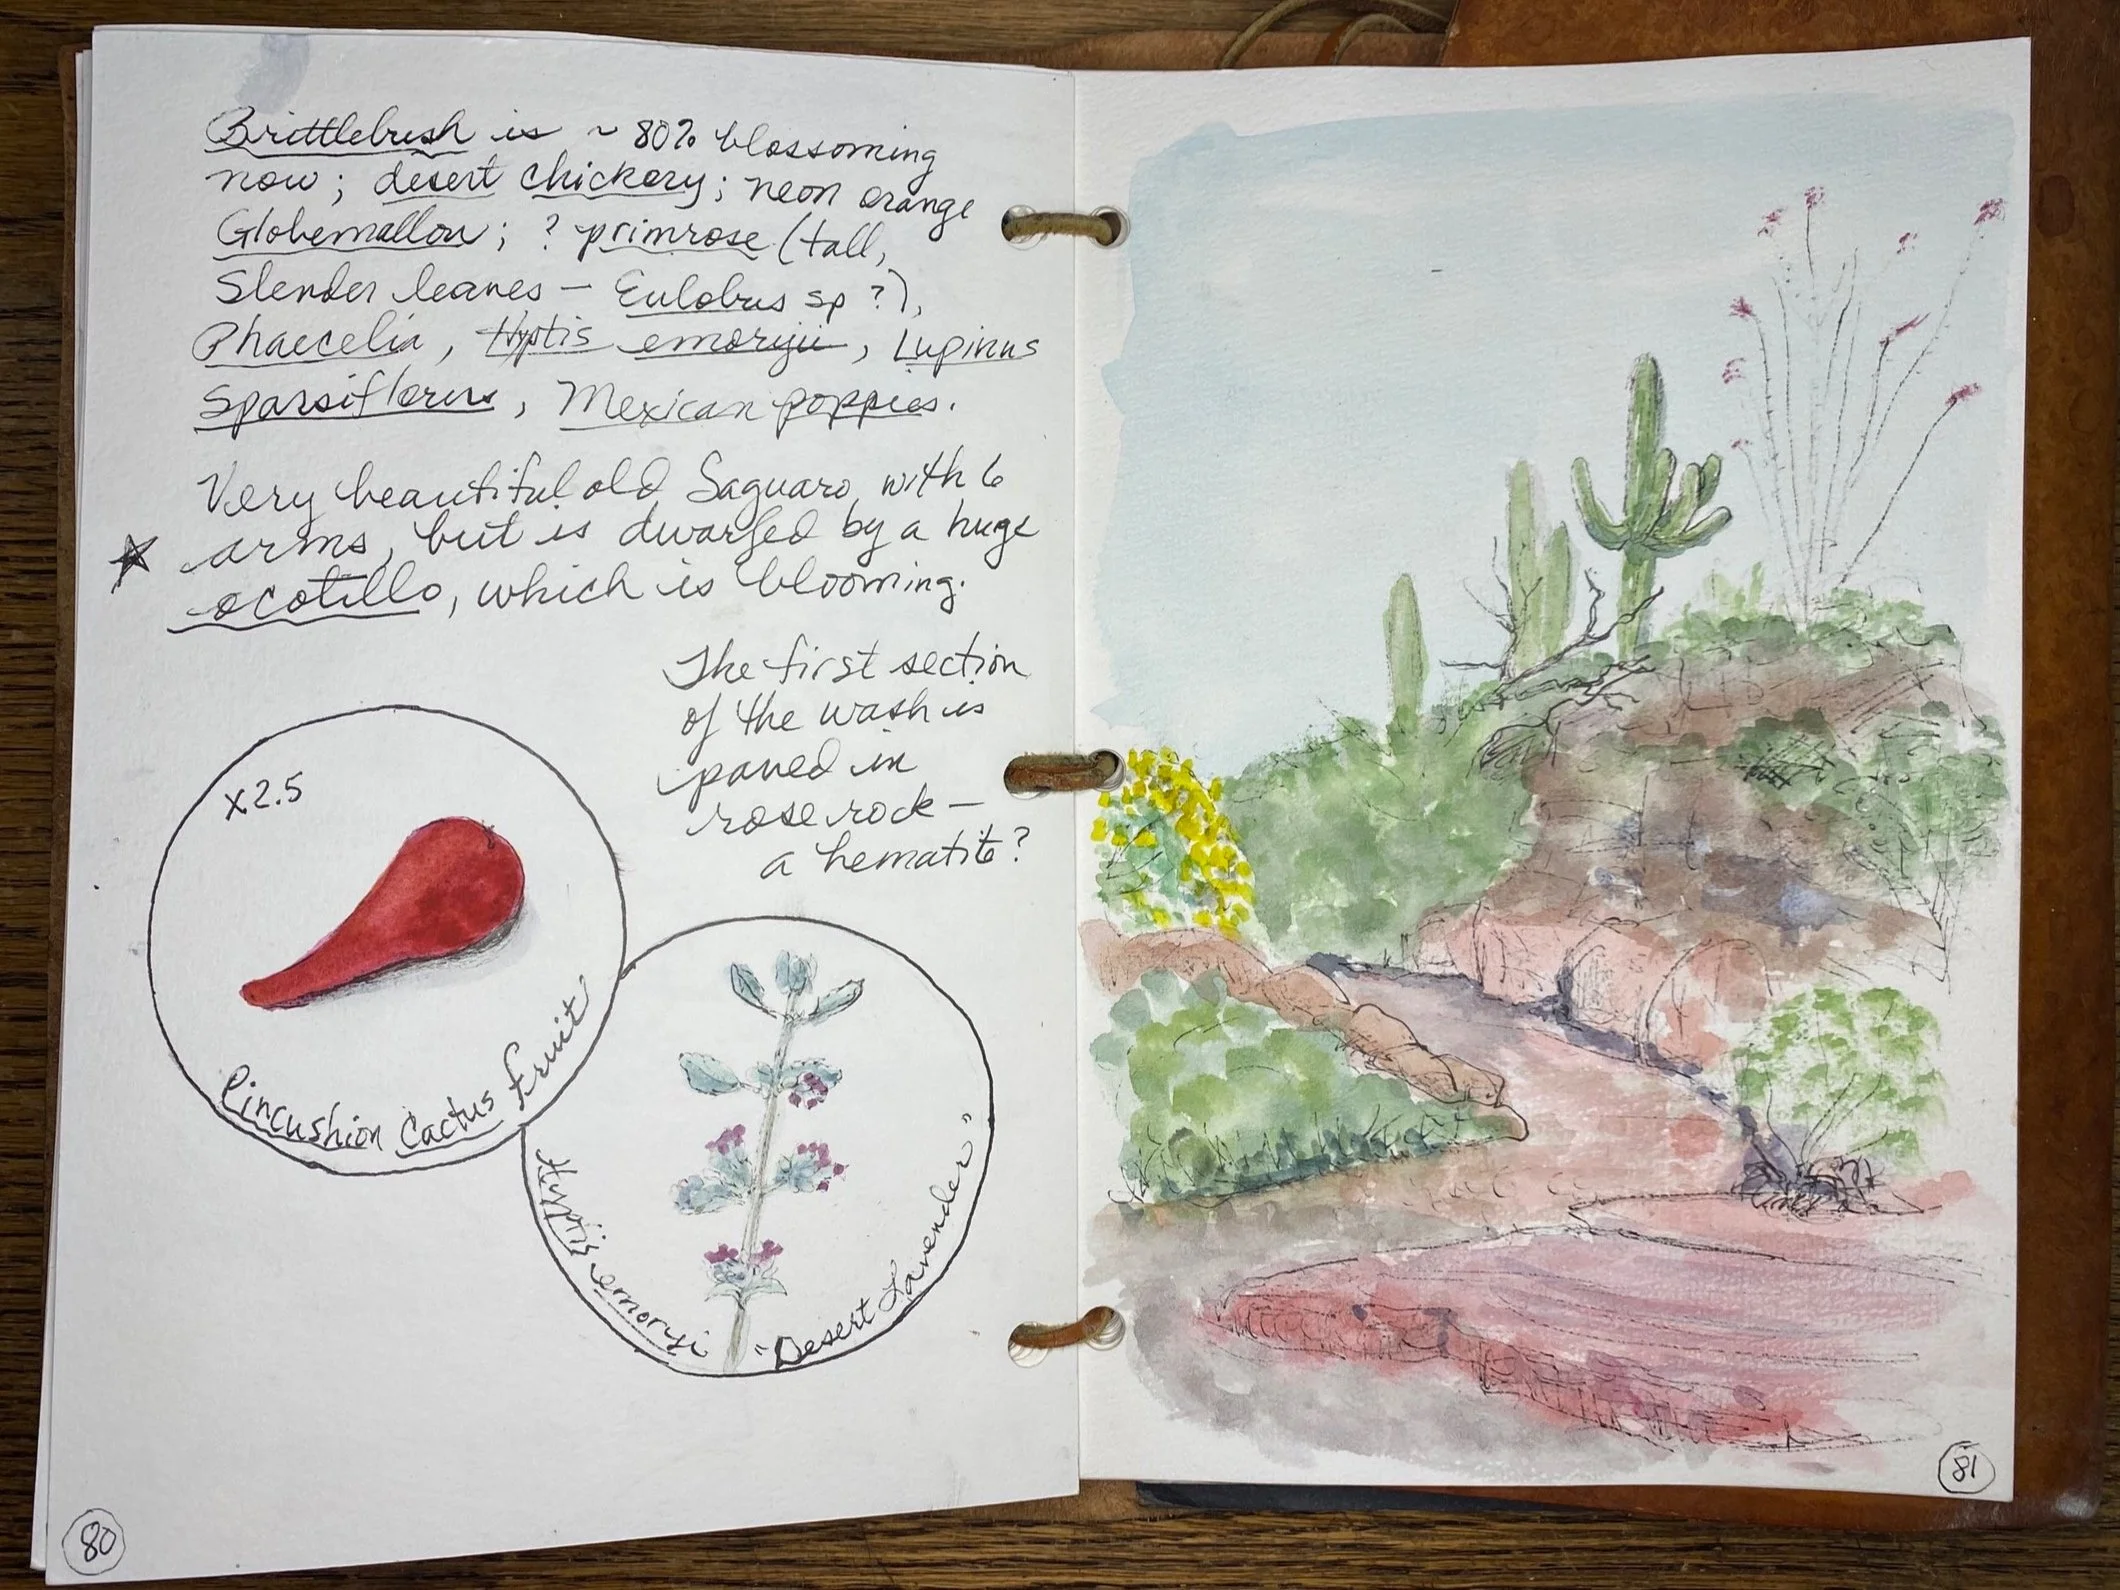 Brittlebush is ~ 80% blossoming
now; desert chickory; neon orange
Globemallow; ? primrose (tall,
Slender leaves — Eulobus sp ?),
Phaecelia, Hyptis emoryii, Lupinus
Sparsiflorus, Mexican poppies.
Very beautiful old Saguaro, with 6
arms, but is dwarfed by a huge
ocotillo, which is blooming.
The first section
of the wash is
paved in
rose rock —
a hematite?
x2.5
Pincushion Cactus fruit
Hyptis emoryi
"Desert Lavender"
80
81